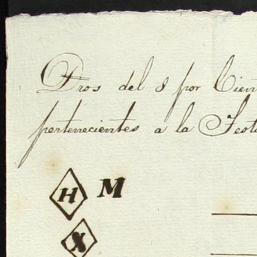 Dros del 8 por Cien
pertenecientes a la Testa
H M
X